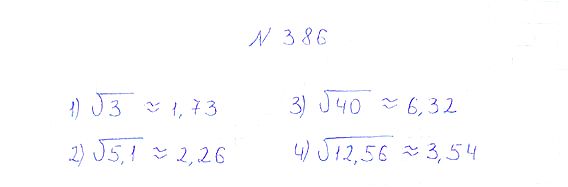 N 386
1) √3 ≈ 1,73
3) √40 ≈ 6,32
2) √5,1 ≈ 2,26
4) √12,56 ≈ 3,54